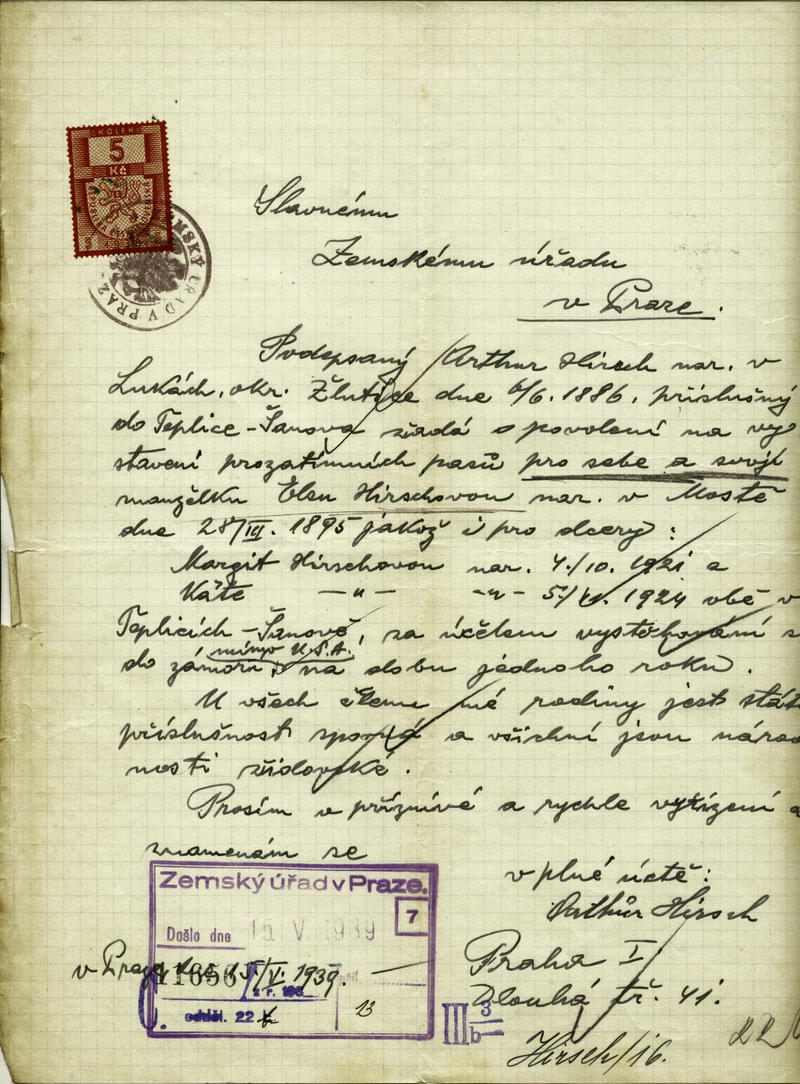 KOLEK
5
Kč
ZEMSKÝ ÚŘAD V PRAZE
Slavnému
Zemskému úřadu
v Praze.
Podepsaný Arthur Hirsch nar. v
Lukách, okr. Žlutice dne 6/6. 1886, příslušný
do Teplice-Šanova žádá o povolení na vy
stavení prozatímních pasů pro sebe a svoji
manželku Elsu Hirschovou nar. v Mostě
dne 28/III. 1895 jakož i pro dcery:
Margit Hirschovou nar. 4./10. 1921 a
Käte —"— —"— 5./ 1924 obě v
Teplicích-Šanově, za účelem vystěhování s
mimo U.S.A.
do zámoří, na dobu jednoho roku.
U všech členu mé rodiny jest stát
příslušnost sporná a všichni jsou národ
nosti židovské.
Prosím o příznivé a rychle vyřízení a
znamenám se
v plné úctě:
Arthur Hirsch
Zemský úřad v Praze.
7
Došlo dne 15 V 1939
v Praze dne 15/V. 1939.
odděl. 22
13
Praha I
Dlouhá tř. 41.
III 3
b
Hirsch/16.
22